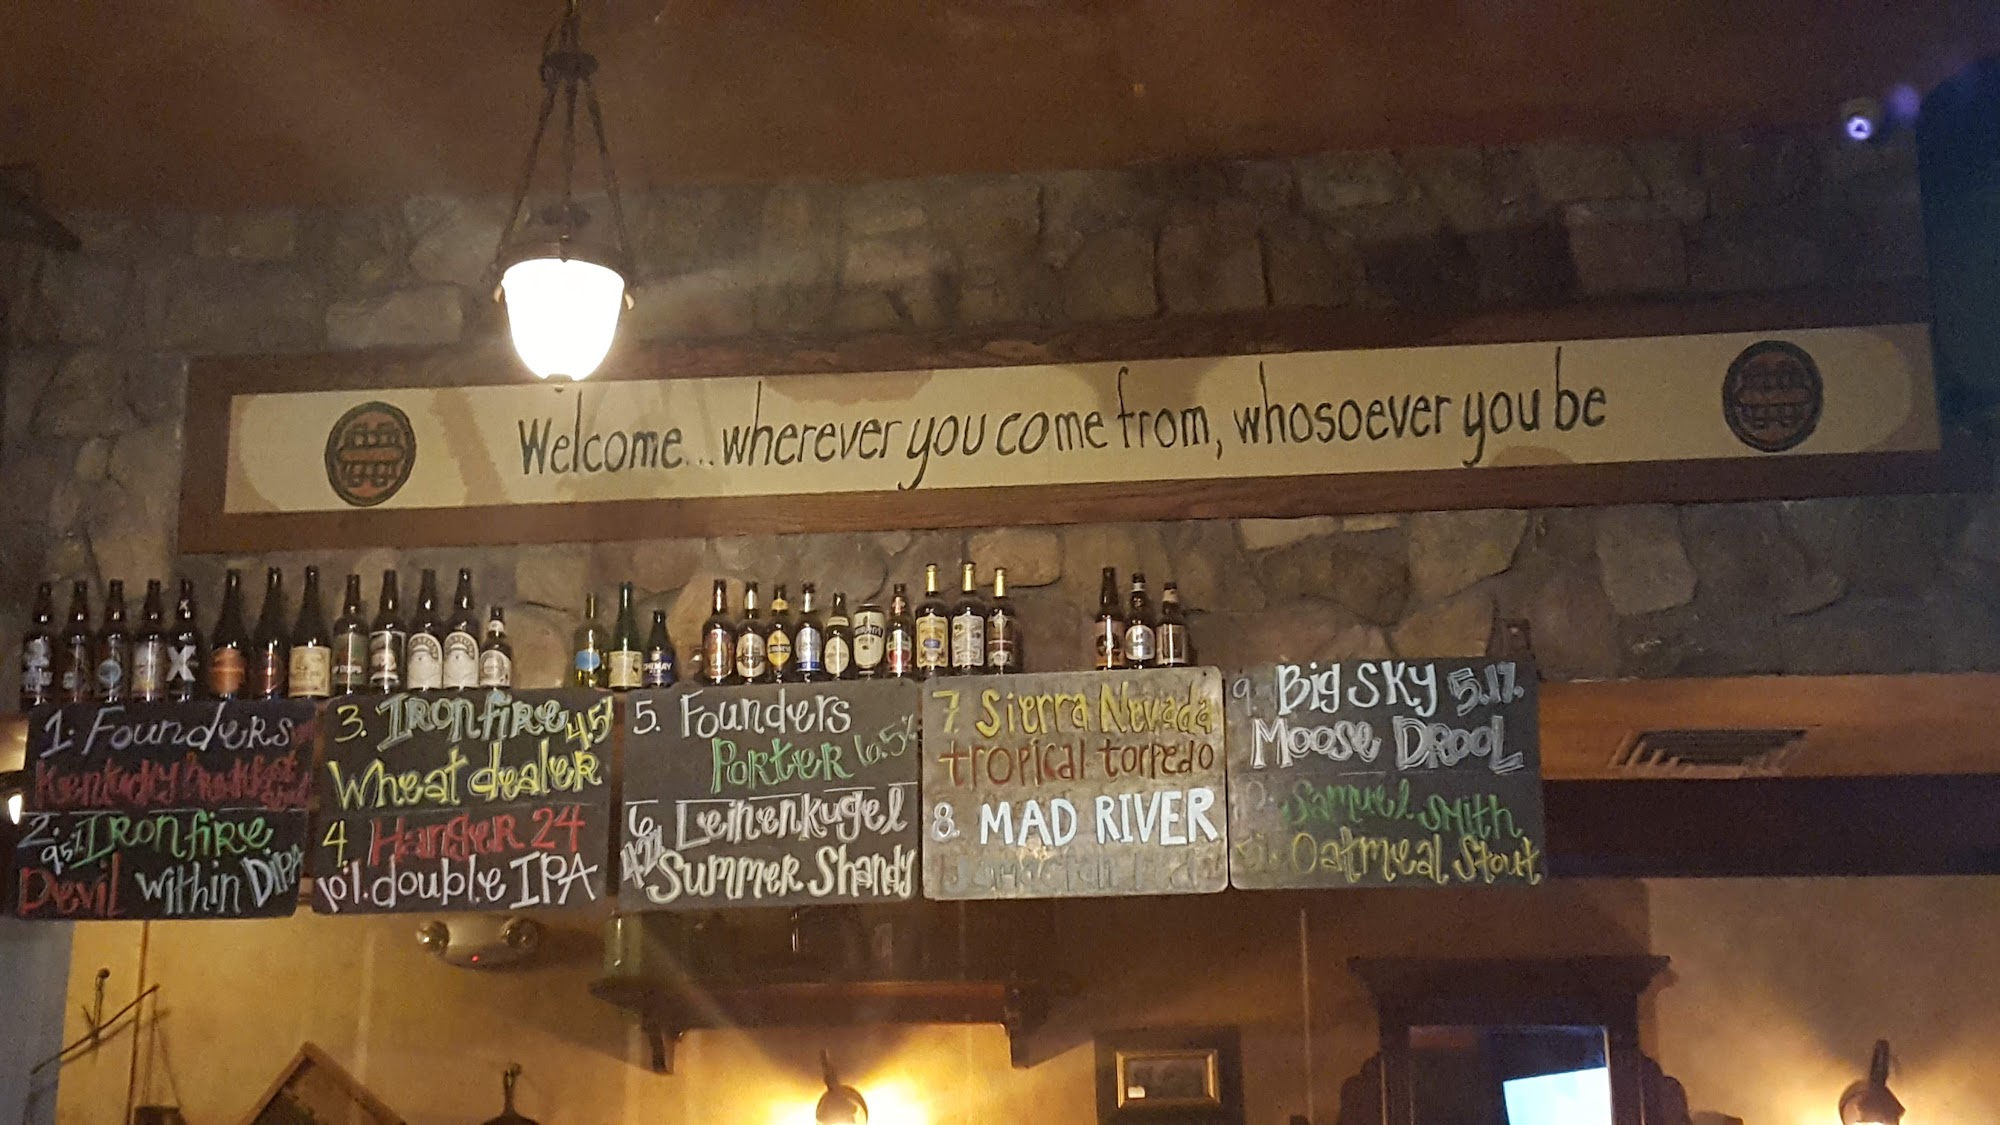 Welcome...wherever you come from, whosoever you be
1. Founders
Kentucky breakfast
2. Ironfire
9.5% Devil within DIPA
3. Ironfire 4.5%
Wheat dealer
4. Hanger 24
10%. double IPA
5. Founders
Porter 6.5%
6 Leinenkugel
Summer Shandy
7 Sierra Nevada
tropical torpedo
8. MAD RIVER
9. Big Sky 5.1%
Moose Drool
Samuel Smith
Oatmeal Stout